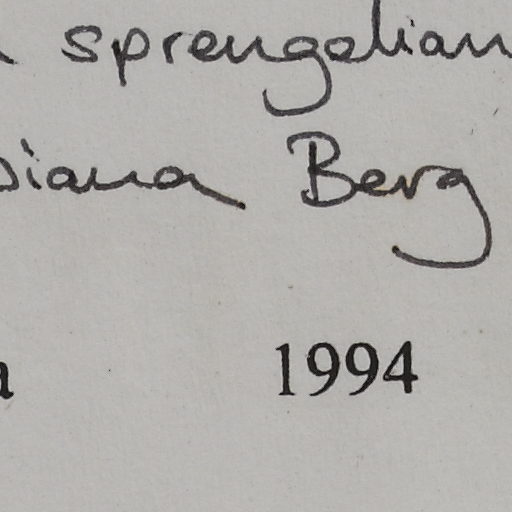 sprengelian
siana Berg
a 1994